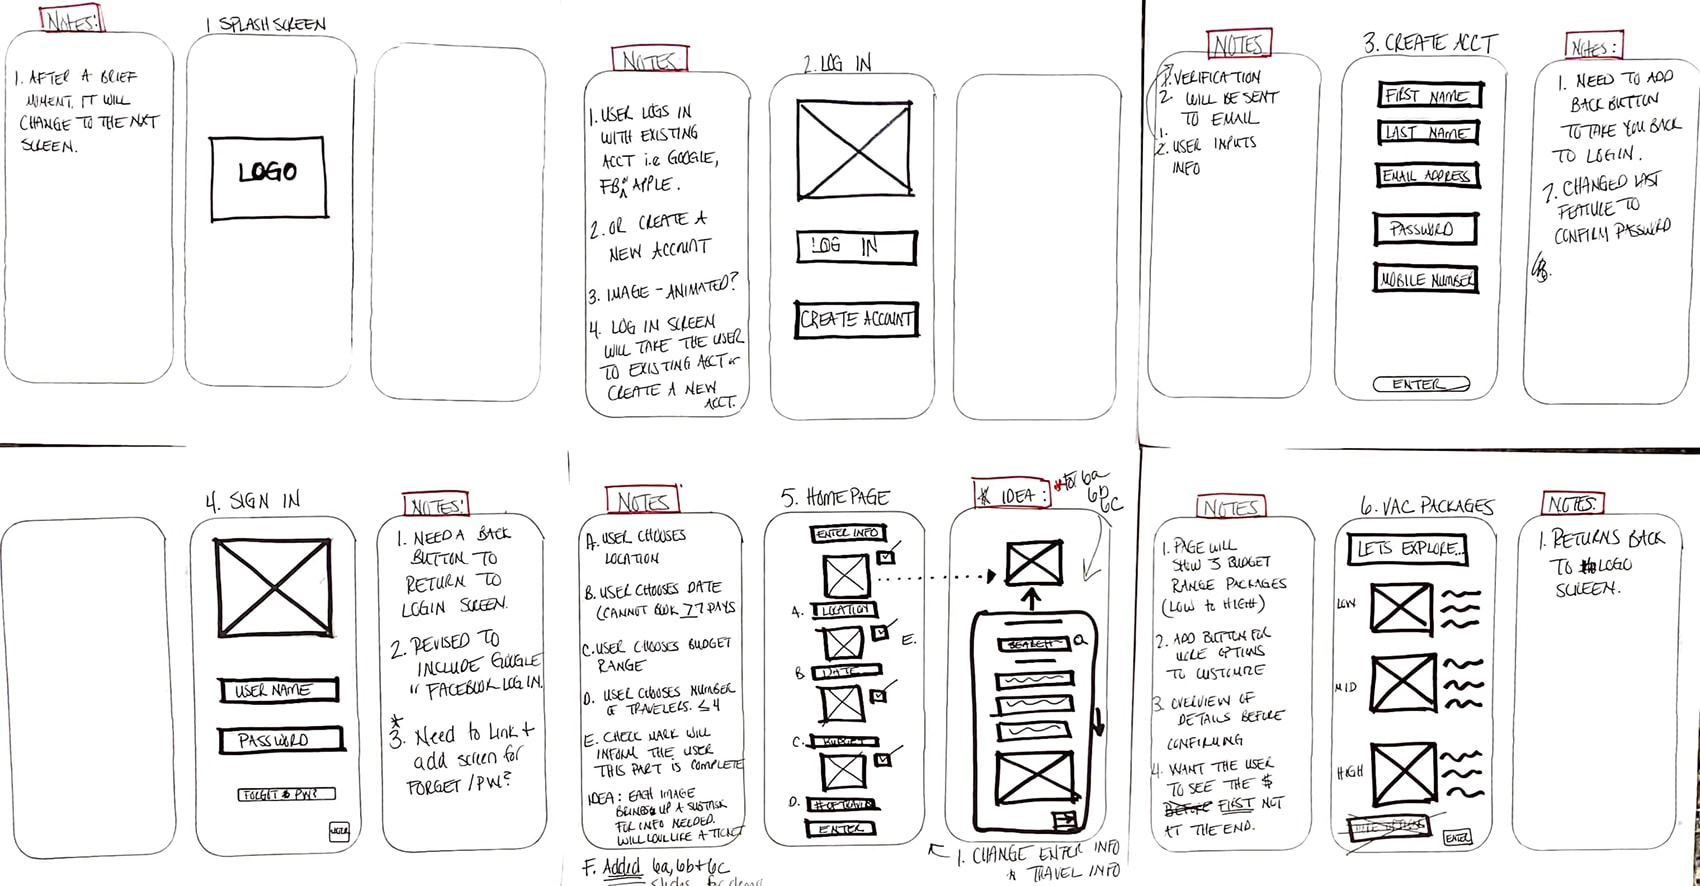 NOTES:
1. AFTER A BRIEF
MOMENT, IT WILL
CHANGE TO THE NXT
SCREEN.
1 SPLASH SCREEN
LOGO
NOTES
1. USER LOGS IN
WITH EXISTING
ACCT i.e GOOGLE,
FB or APPLE.
2. OR CREATE A
NEW ACCOUNT
3. IMAGE - ANIMATED?
4. LOG IN SCREEN
WILL TAKE THE USER
TO EXISTING ACCT or
CREATE A NEW
ACCT.
2. LOG IN
LOG IN
CREATE ACCOUNT
NOTES
1. VERIFICATION
2. WILL BE SENT
TO EMAIL
1.
2. USER INPUTS
INFO
3. CREATE ACCT
FIRST NAME
LAST NAME
EMAIL ADDRESS
PASSWORD
MOBILE NUMBER
ENTER
NOTES:
1. NEED TO ADD
BACK BUTTON
TO TAKE YOU BACK
TO LOGIN.
2. CHANGED LAST
FEATURE TO
CONFIRM PASSWORD
4. SIGN IN
USER NAME
PASSWORD
FORGET PW?
ENTER
NOTES:
1. NEED A BACK
BUTTON TO
RETURN TO
LOGIN SCREEN.
2. REVISED TO
INCLUDE GOOGLE
FACEBOOK LOG IN.
* 3. Need to Link +
add screen for
FORGET /PW?
NOTES
A. USER CHOOSES
LOCATION
B. USER CHOOSES DATE
(CANNOT BOOK >7 DAYS
C. USER CHOOSES BUDGET
RANGE
D. USER CHOOSES NUMBER
OF TRAVELERS. ≤4
E. CHECK MARK WILL
INFORM THE USER
THIS PART IS COMPLETE
IDEA: EACH IMAGE
BRINGS UP A SUBTASK
FOR INFO NEEDED.
WILL LOOK LIKE A TICKET
F. Added 6a, 6b + 6c
5. HOME PAGE
ENTER INFO
A. LOCATION
E.
B DATE
C. BUDGET
D. # OF TRAVLRS
ENTER
* IDEA:
* For 6a
6b
6C
SEARCH
a
1. CHANGE ENTER INFO
TRAVEL INFO
NOTES
1. PAGE WILL
SHOW 3 BUDGET
RANGE PACKAGES
(LOW to HIGH)
2. ADD BUTTON FOR
MORE OPTIONS
TO CUSTOMIZE
3. OVERVIEW OF
DETAILS BEFORE
CONFIRMING
4. WANT THE USER
TO SEE THE $
BEFORE FIRST NOT
AT THE END.
6. VAC PACKAGES
LETS EXPLORE...
LOW
MID
HIGH
ENTER
NOTES:
1. RETURNS BACK
TO LOGO
SCREEN.